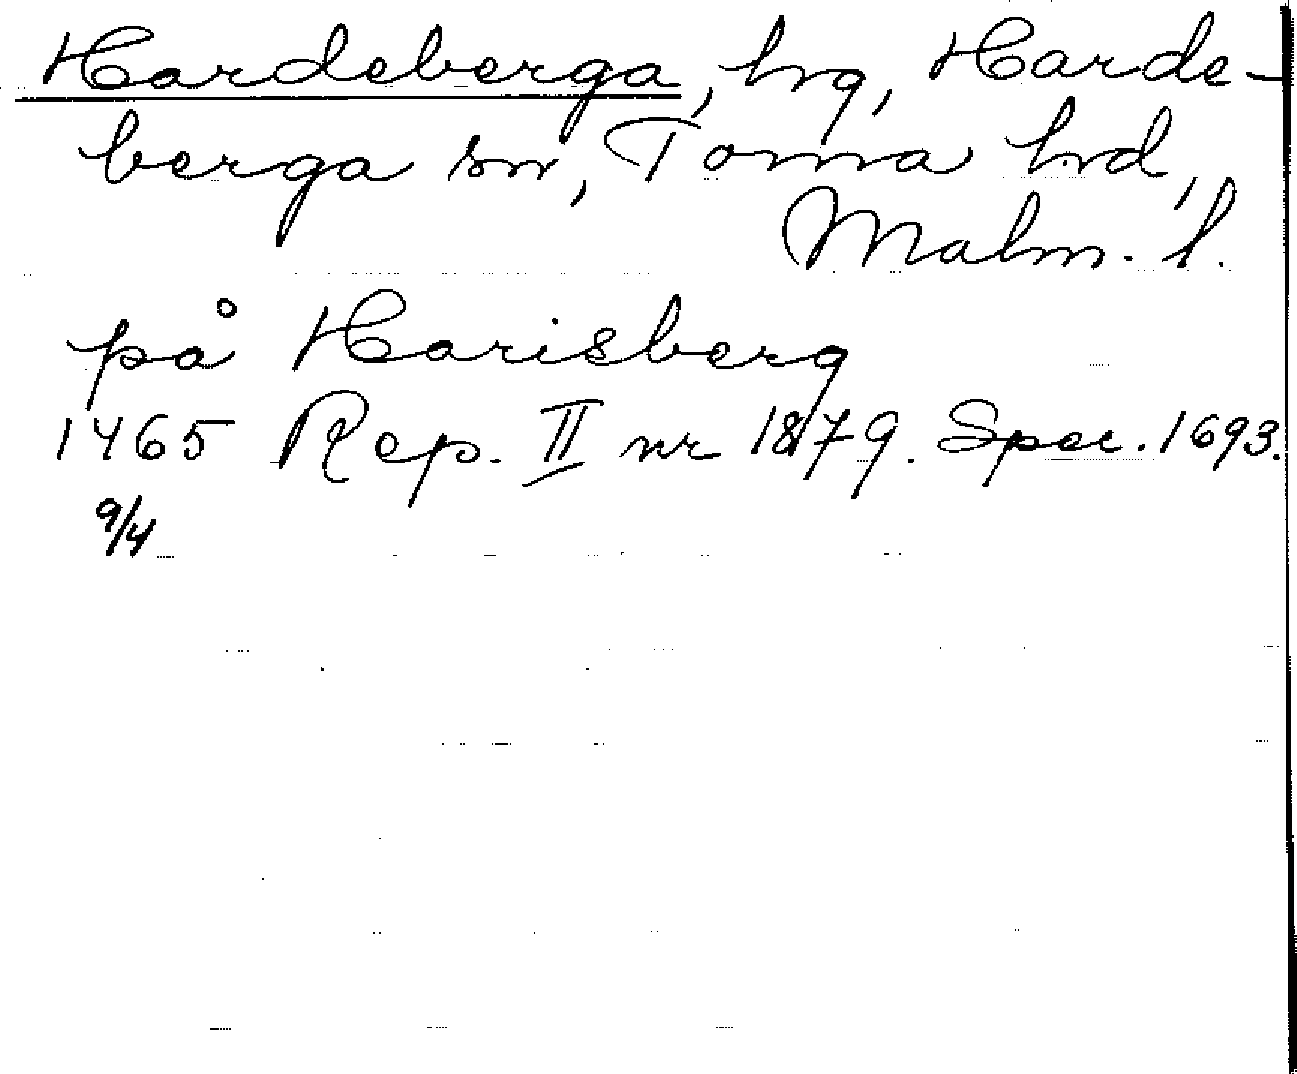 Hardeberga, hg, Harde-
berga sn, Torna hrd,
Malm. l.
på Harisberg
1465 Rep. II nr 1879. Spec. 1693.
9/4